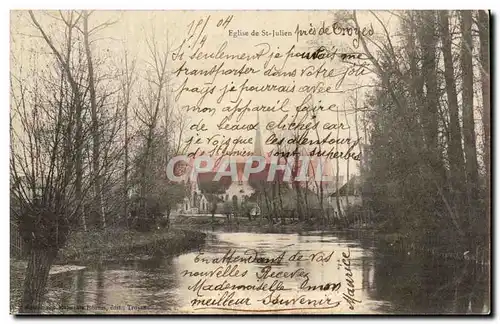 18/4 04
Eglise de St-Julien près de Troyes
Si seulement je pouvais me
transporter dans votre joli
pays je pourrais avec
mon appareil faire
de beaux clichés car
je vois que les alentours
de St Julien sont superbes
CPA
En attendant de vos
nouvelles Recevez
Mademoiselle mon
meilleur souvenir
Maurice